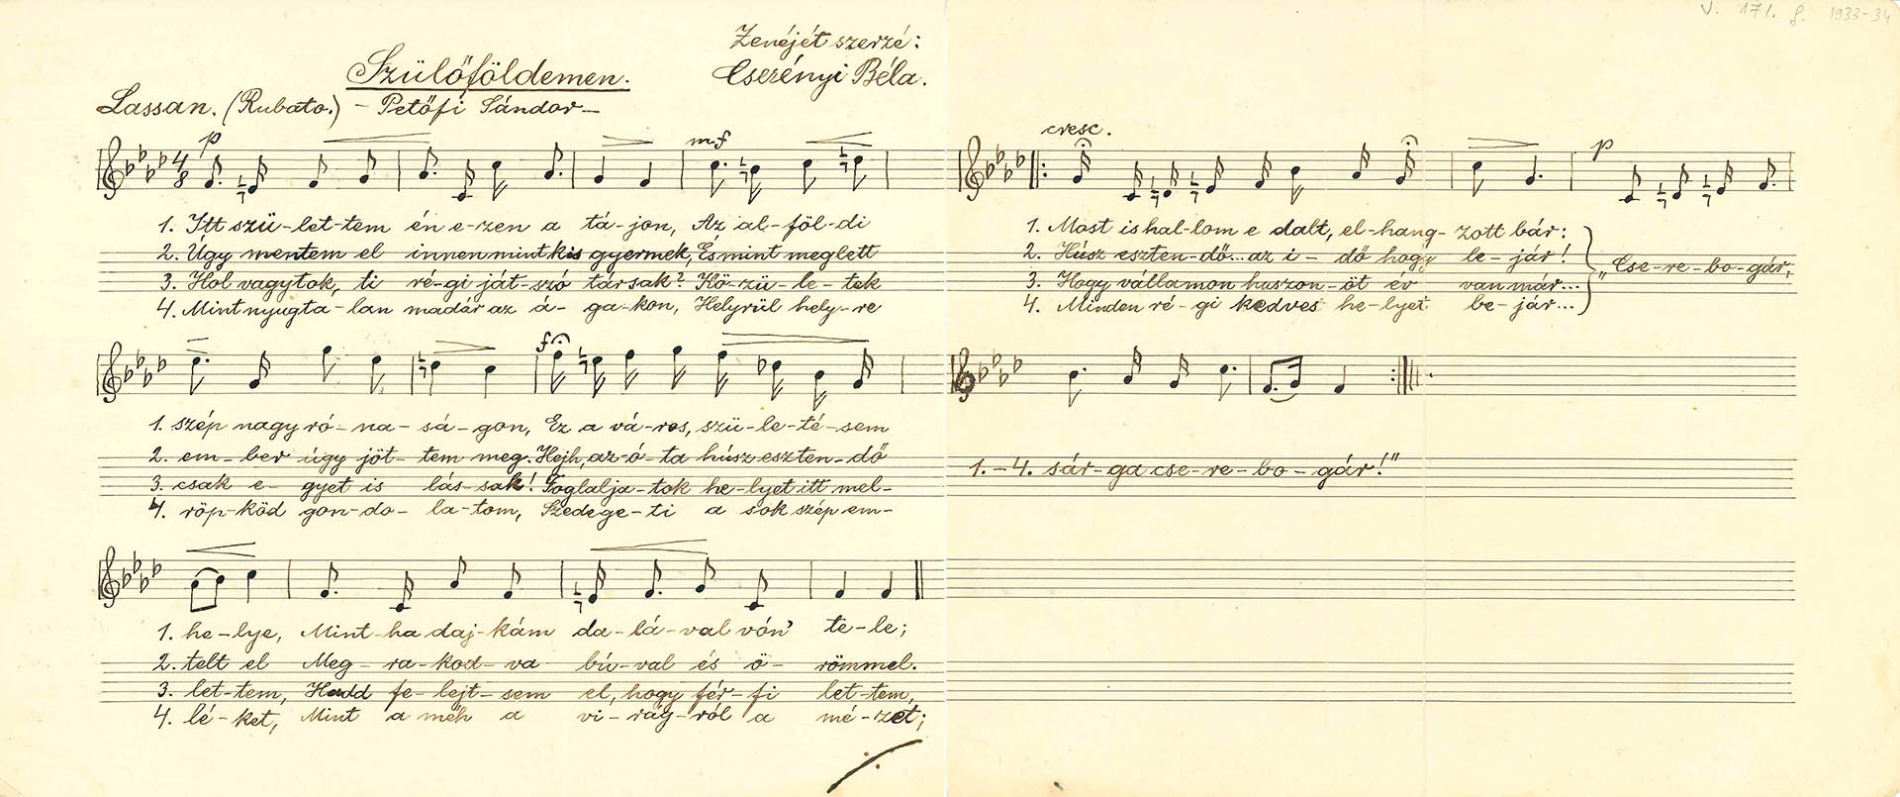 V. 171. g. 1933-34
Zenéjét szerzé:
Szülőföldemen. Cserényi Béla.
Lassan. (Rubato.) – Petőfi Sándor –
p mf
4/8
1. Itt szü-let-tem én e-zen a tá-jon, Az al-föl-di
2. Úgy mentem el innen mint kis gyermek, És mint meglett
3. Hol vagytok, ti ré-gi ját-szó társak? Kö-zü-le-tek
4. Mint nyugta-lan madár az á-ga-kon, Helyrül hely-re
f
1. szép nagy ró-na-sá-gon, Ez a vá-ros, szü-le-té-sem
2. em-ber úgy jöt-tem meg. Hejh, az-ó-ta húsz eszten-dő
3. csak e-gyet is lás-sak! Foglalja-tok he-lyet itt mel-
4. röp-köd gon-do-la-tom, Szedege-ti a sok szép em-
1. he-lye, Mint-ha daj-kám da-lá-val vón' te-le;
2. telt el Meg-ra-kod-va bú-val és ö-römmel.
3. let-tem, Hadd fe-lejt-sem el, hogy fér-fi let-tem,
4. lé-ket, Mint a méh a vi-rág-ról a mé-zet;
cresc. p
1. Most is hal-lom e dalt, el-hang-zott bár:
2. Húsz eszten-dő... az i-dő hogy le-jár!
„Cse-re-bo-gár,
3. Hogy vállamon huszon-öt év van már...
4. Minden ré-gi kedves he-lyet be-jár...
1.-4. sár-ga cse-re-bo-gár!"